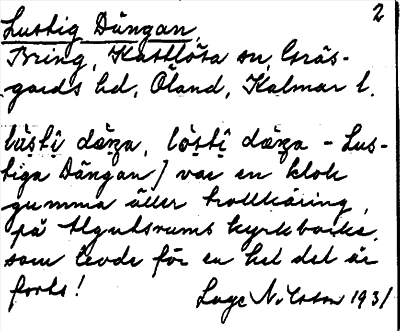 2
Lustig Dängan,
Bring, Kastlösa sn, Gräs-
gards hd, Öland, Kalmar l.
lùs̱tî dæŋa, lòs̱tî dæŋa - Lus-
tiga Dängan) var en klok
gumma äller trollkäring,
på Algutsrums kyrkbacke,
som levde för en hel del år
forts!
Lage Nilsson 1931